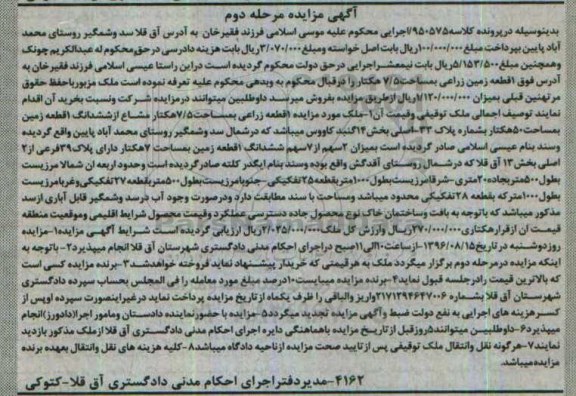 آگهی مزایده مرحله دوم
بدینوسیله درپرونده کلاسه ۹۵۰۵۷۵/اجرایی محکوم علیه موسی اسلامی فرزند فقیرخان به آدرس آق قلا سد وشمگیر روستای محمد
آباد پایین بپرداخت مبلغ ۱۰۰/۰۰۰/۰۰۰ریال بابت اصل خواسته ومبلغ ۳/۰۷۰/۰۰۰ریال بابت هزینه دادرسی درحق محکوم له عبدالکریم چونک
وهمچنین مبلغ ۵/۱۵۳/۵۰۰ریال بابت نیمعشراجرایی درحق دولت محکوم گردیده است دراین راستا عیسی اسلامی فرزند فقیرخان به
آدرس فوق ۱قطعه زمین زراعی بمساحت ۷/۵ هکتار را درقبال محکوم به وبدهی محکوم علیه تعرفه نموده است ملک مزبورباحفظ حقوق
مرتهنین قبلی بمیزان ۷۱۲۰/۰۰۰/۰۰۰ریال ازطریق مزایده بفروش میرسد داوطلبین میتوانند درمزایده شرکت ونسبت بخرید آن اقدام
نمایند توصیف اجمالی ملک توقیفی وقیمت آن ۱-ملک مورد مزایده ۱قطعه زراعی بمساحت ۷/۵هکتار مشاع ازششدانگ ۱قطعه زمین
بمساحت ۵۰هکتار بشماره پلاک ۳۳-اصلی بخش ۱۴گنبد کاووس میباشد که درشمال سد وشمگیر روستای محمد آباد پایین واقع گردیده
وسند بنام عیسی اسلامی صادر گردیده است بمیزان ۲سهم از۷سهم ششدانگ ۱قطعه زمین بمساحت ۷هکتار دارای پلاک ۳۹فرعی از۲
اصلی بخش ۱۳ آق قلا که درشمال روستای آقدگش واقع بوده وسند بنام ایگدر کلته صادرگردیده است وحدود اربعه ان شمالا مرزیست
بطول ۵۰۰متربجاده ۲۰متری-شرقا مرزیست بطول ۱۰۰۰متربقطعه ۲۵تفکیکی-جنوبا مرزیست بطول ۵۰۰متربقطعه ۲۷تفکیکی وغربا مرزیست
بطول ۱۰۰۰متر که بقطعه ۲۸تفکیکی محدود میباشد ومساحت با سند مطابقت دارد ودرصورت وجود آب درسد وشمگیر قابل آبیاری ازسد
مذکور میباشد که باتوجه به بافت وساختمان خاک نوع محصول جاده دسترسی عملکرد وقیمت محصول شرایط اقلیمی وموقعیت منطقه
قیمت ان ازقرارهکتاری ۰۰۰/۰۰۰ریال وارزش کل ملک ۲/۰۳۵/۰۰۰/۰۰۰ریال ارزیابی گردیده است شرایط آگهی مزایده ۱-مزایده
روزدوشنبه درتاریخ ۱۳۹۶/۰۸/۱۵-ازساعت ۱۰الی ۱۱صبح دراجرای احکام مدنی دادگستری شهرستان آق قلا انجام میپذیرد ۲-باتوجه به
اینکه مزایده درمرحله دوم برگزار میگردد ملک به هرقیمتی که خریدار پیشنهاد نماید فروخته خواهدشد ۳-برنده مزایده کسی است
که بالاترین قیمت رادرجلسه قبول نماید ۴-برنده مزایده میبایست ۱۰درصد مبلغ مورد معامله را فی المجلس بحساب سپرده دادگستری
شهرستان آق قلا بشماره ۲۱۷۱۲۹۴۶۴۷۰۰۶واریز والباقی را ظرف یکماه ازتاریخ مزایده پرداخت نماید درغیراینصورت سپرده اوپس از
کسرهزینه های اجرایی به نفع دولت ضبط وآگهی مزایده تجدید میگردد ۵-مزایده با حضورنماینده دادستان ومامور اجرا(دادورز)انجام
میپذیرد ۶-داوطلبین میتوانند ۵روزقبل ازتاریخ مزایده باهماهنگی دایره اجرای احکام مدنی دادگستری آق قلا ازملک مذکور بازدید
نمایند ۷-هرگونه نقل وانتقال ملک توقیفی پس ازتایید صحت مزایده ازناحیه دادگاه میباشد ۸-کلیه هزینه های نقل وانتقال بعهده برنده
مزایده میباشد.
۴۱۶۲-مدیردفتراجرای احکام مدنی دادگستری آق قلا-کتوکی